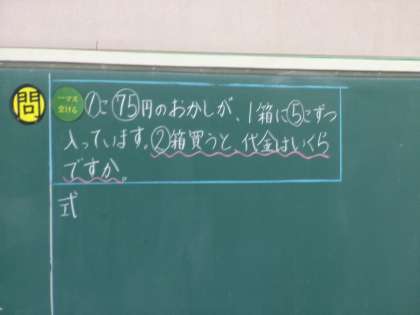 問
一マス
空ける
①こ75円のおかしが、1箱に⑤こずつ
入っています。②箱買うと、代金はいくら
ですか。
式